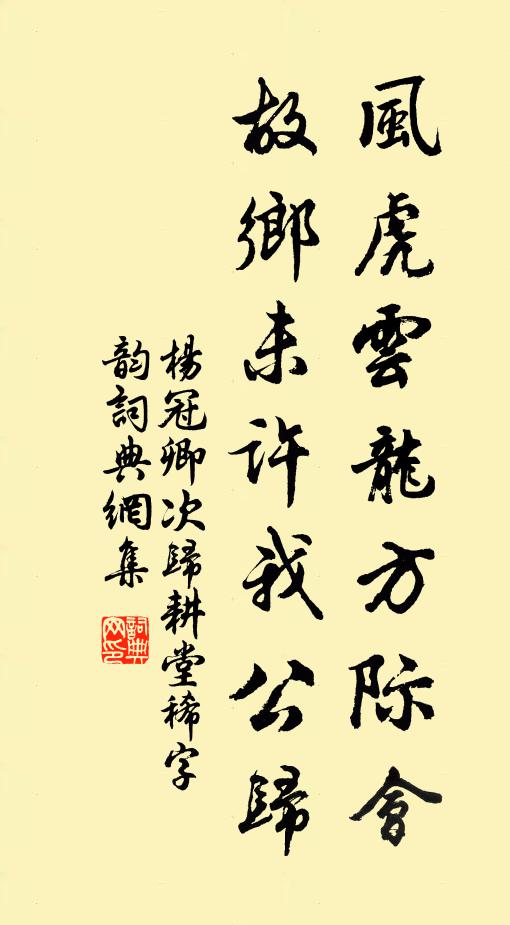 風虎雲龍方际會
故鄉未许我公歸
楊冠卿次歸耕堂稀字
韵詞典網集
詞典网印